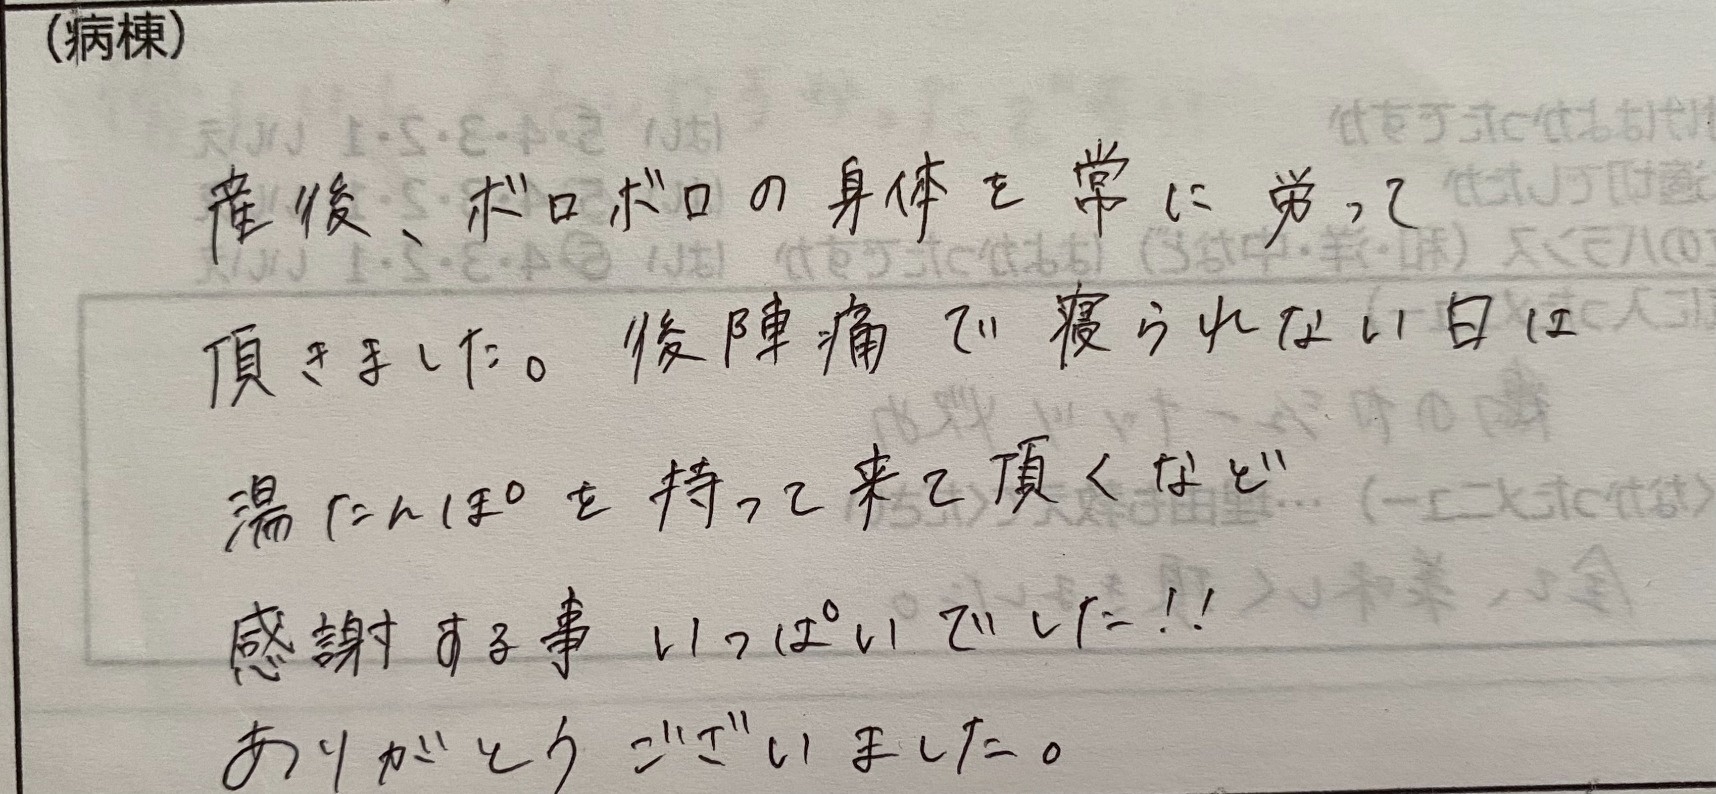 （病棟）
産後、ボロボロの身体を常に労って
頂きました。後陣痛で寝られない日は
湯たんぽを持って来て頂くなど
感謝する事いっぱいでした!!
ありがとうございました。